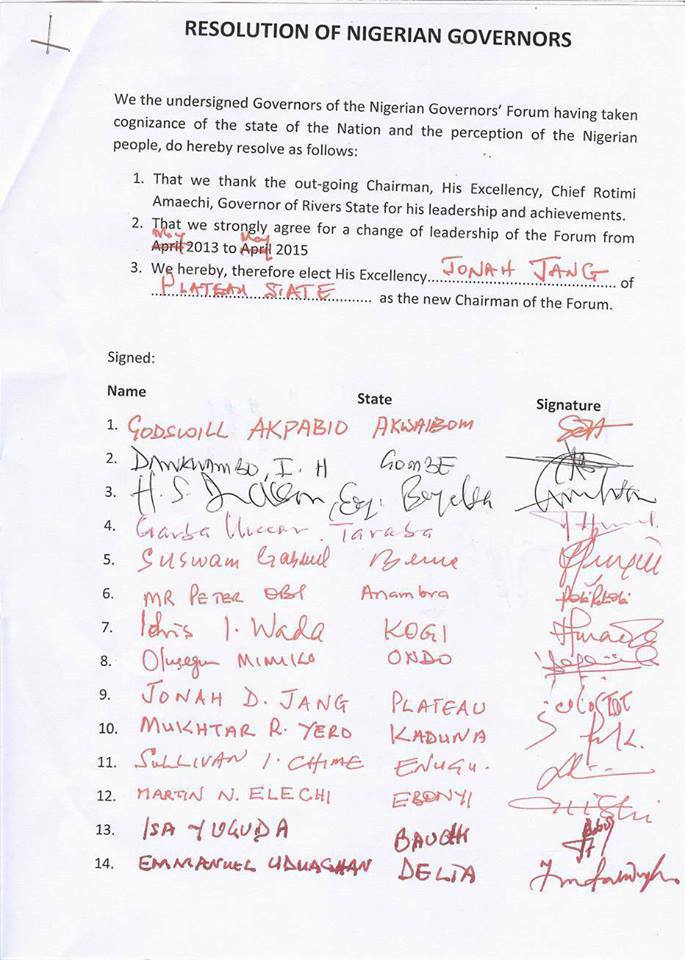 RESOLUTION OF NIGERIAN GOVERNORS
We the undersigned Governors of the Nigerian Governors' Forum having taken
cognizance of the state of the Nation and the perception of the Nigerian
people, do hereby resolve as follows:
1. That we thank the out-going Chairman, His Excellency, Chief Rotimi
Amaechi, Governor of Rivers State for his leadership and achievements.
2. That we strongly agree for a change of leadership of the Forum from
May May
April 2013 to April 2015
3. We hereby, therefore elect His Excellency JONAH JANG of
PLATEAU STATE as the new Chairman of the Forum.
Signed:
Name State Signature
1. GODSWILL AKPABIO AKWAIBOM
2. DANKWAMBO, I. H GOMBE
3. H. S.
4. Garba Umar Taraba
5. SUSWAM Gabriel Benue
6. MR PETER OBI Anambra
7. Idris I. Wada KOGI
8. Olusegun MIMIKO ONDO
9. JONAH D. JANG PLATEAU
10. MUKHTAR R. YERO KADUNA
11. SULLIVAN I. CHIME ENUGU.
12. MARTIN N. ELECHI EBONYI
13. ISA YUGUDA BAUCHI
14. EMMANUEL UDUAGHAN DELTA